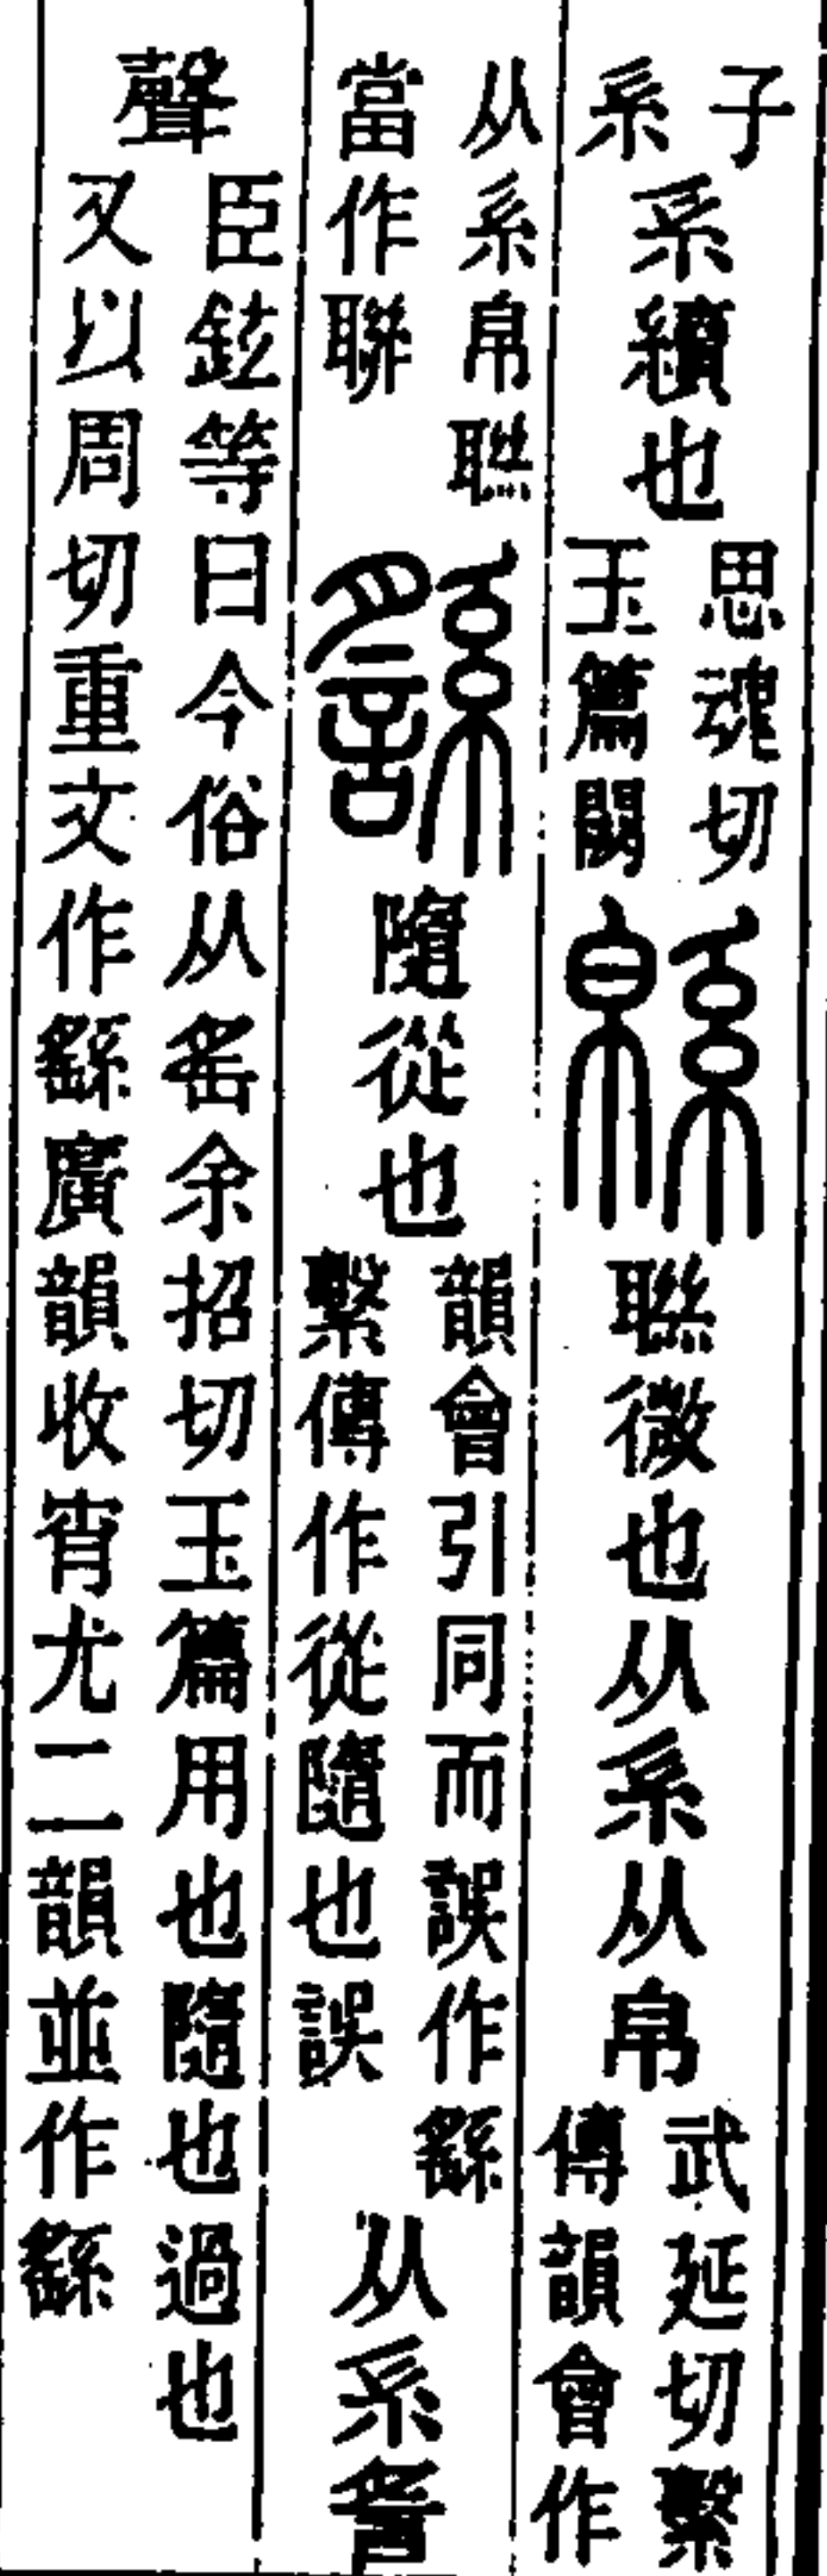 子系系續也思魂切玉篇闕緜聮微也从系从帛武延切繫傳韻會作
从系帛聮當作聯䌛隨從也韻會引同而誤作繇繫傳作從隨也誤从系䚻
聲臣鉉等曰今俗从䍃余招切玉篇用也隨也過也又以周切重文作繇廣韻收宵尤二韻並作繇